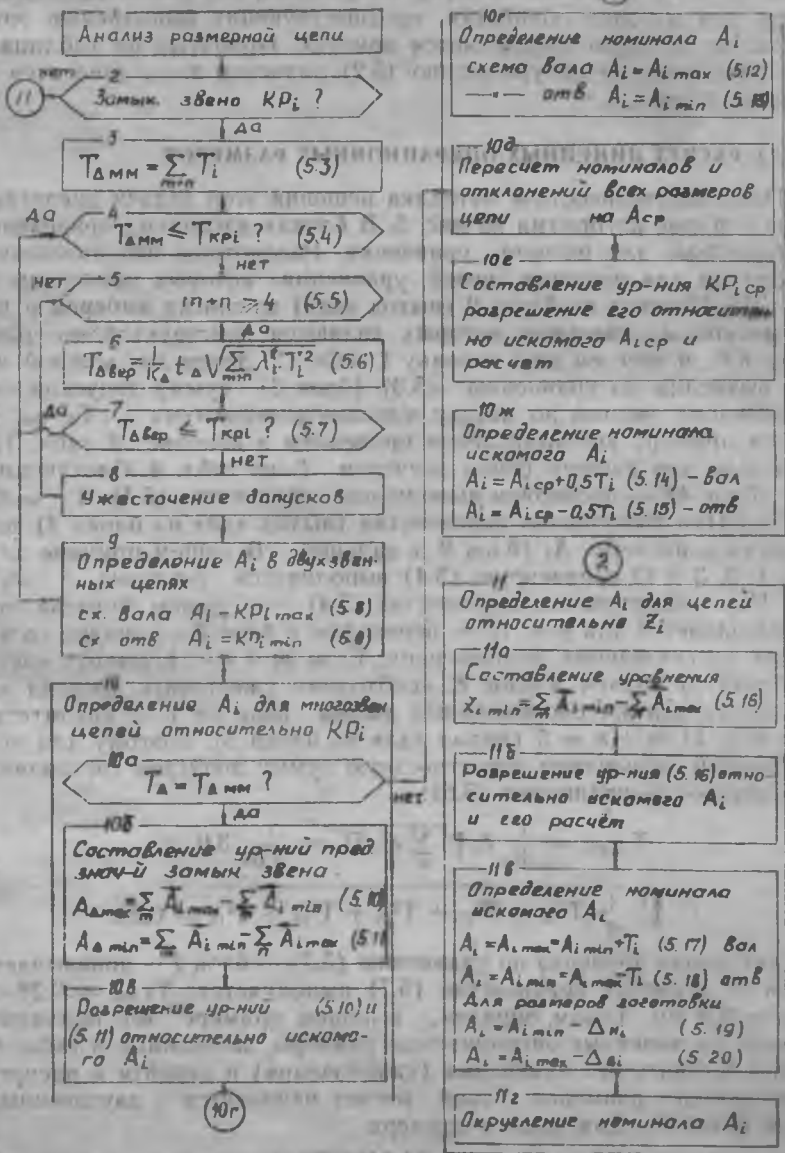 Анализ размерной цепи
нет 2
11 Замык. звено KPi ?
да
3
TΔмм = Σ Ti (5.3)
m+n
да 4
TΔмм ≤ TKPi ? (5.4)
нет
нет 5
m+n ≥ 4 (5.5)
да
6
TΔвер = 1/KΔ tΔ √Σ λi² Ti² (5.6)
m+n
да 7
TΔвер ≤ TKPi ? (5.7)
нет
8
Ужесточение допусков
9
Определение Ai в двухзвен-
ных цепях
сх. вала Ai = KPi max (5.8)
сх отв Ai = KPi min (5.9)
10
Определение Ai для многозвен
цепей относительно KPi
10а
TΔ = TΔмм ?
нет
да
10б
Составление ур-ний пред.
знач-й замык звена
AΔmax = Σ Ai max − Σ Ai min (5.10)
AΔmin = Σ Ai min − Σ Ai max (5.11)
10в
Разрешение ур-ний (5.10) и
(5.11) относительно искомо-
го Ai
10г
10г
Определение номинала Ai
схема вала Ai = Ai max (5.12)
—"— отв Ai = Ai min (5.13)
10д
Пересчет номиналов и
отклонений всех размеров
цепи на Aср
10е
Составление ур-ния KPi ср
разрешение его относитель
но искомого Ai ср и
расчет
10ж
Определение номинала
искомого Ai
Ai = Ai ср + 0,5Ti (5.14) – вал
Ai = Ai ср − 0,5Ti (5.15) – отв
2
11
Определение Ai для цепей
относительно Zi
11а
Составление уравнения
Zi min = Σ Ai min − Σ Ai max (5.16)
11б
Разрешение ур-ния (5.16) отно-
сительно искомого Ai
и его расчёт
11в
Определение номинала
искомого Ai
Ai = Ai max = Ai min + Ti (5.17) вал
Ai = Ai min = Ai max − Ti (5.18) отв
Для размеров заготовки
Ai = Ai min − Δнi (5.19)
Ai = Ai max − Δвi (5.20)
11г
Округление номинала Ai